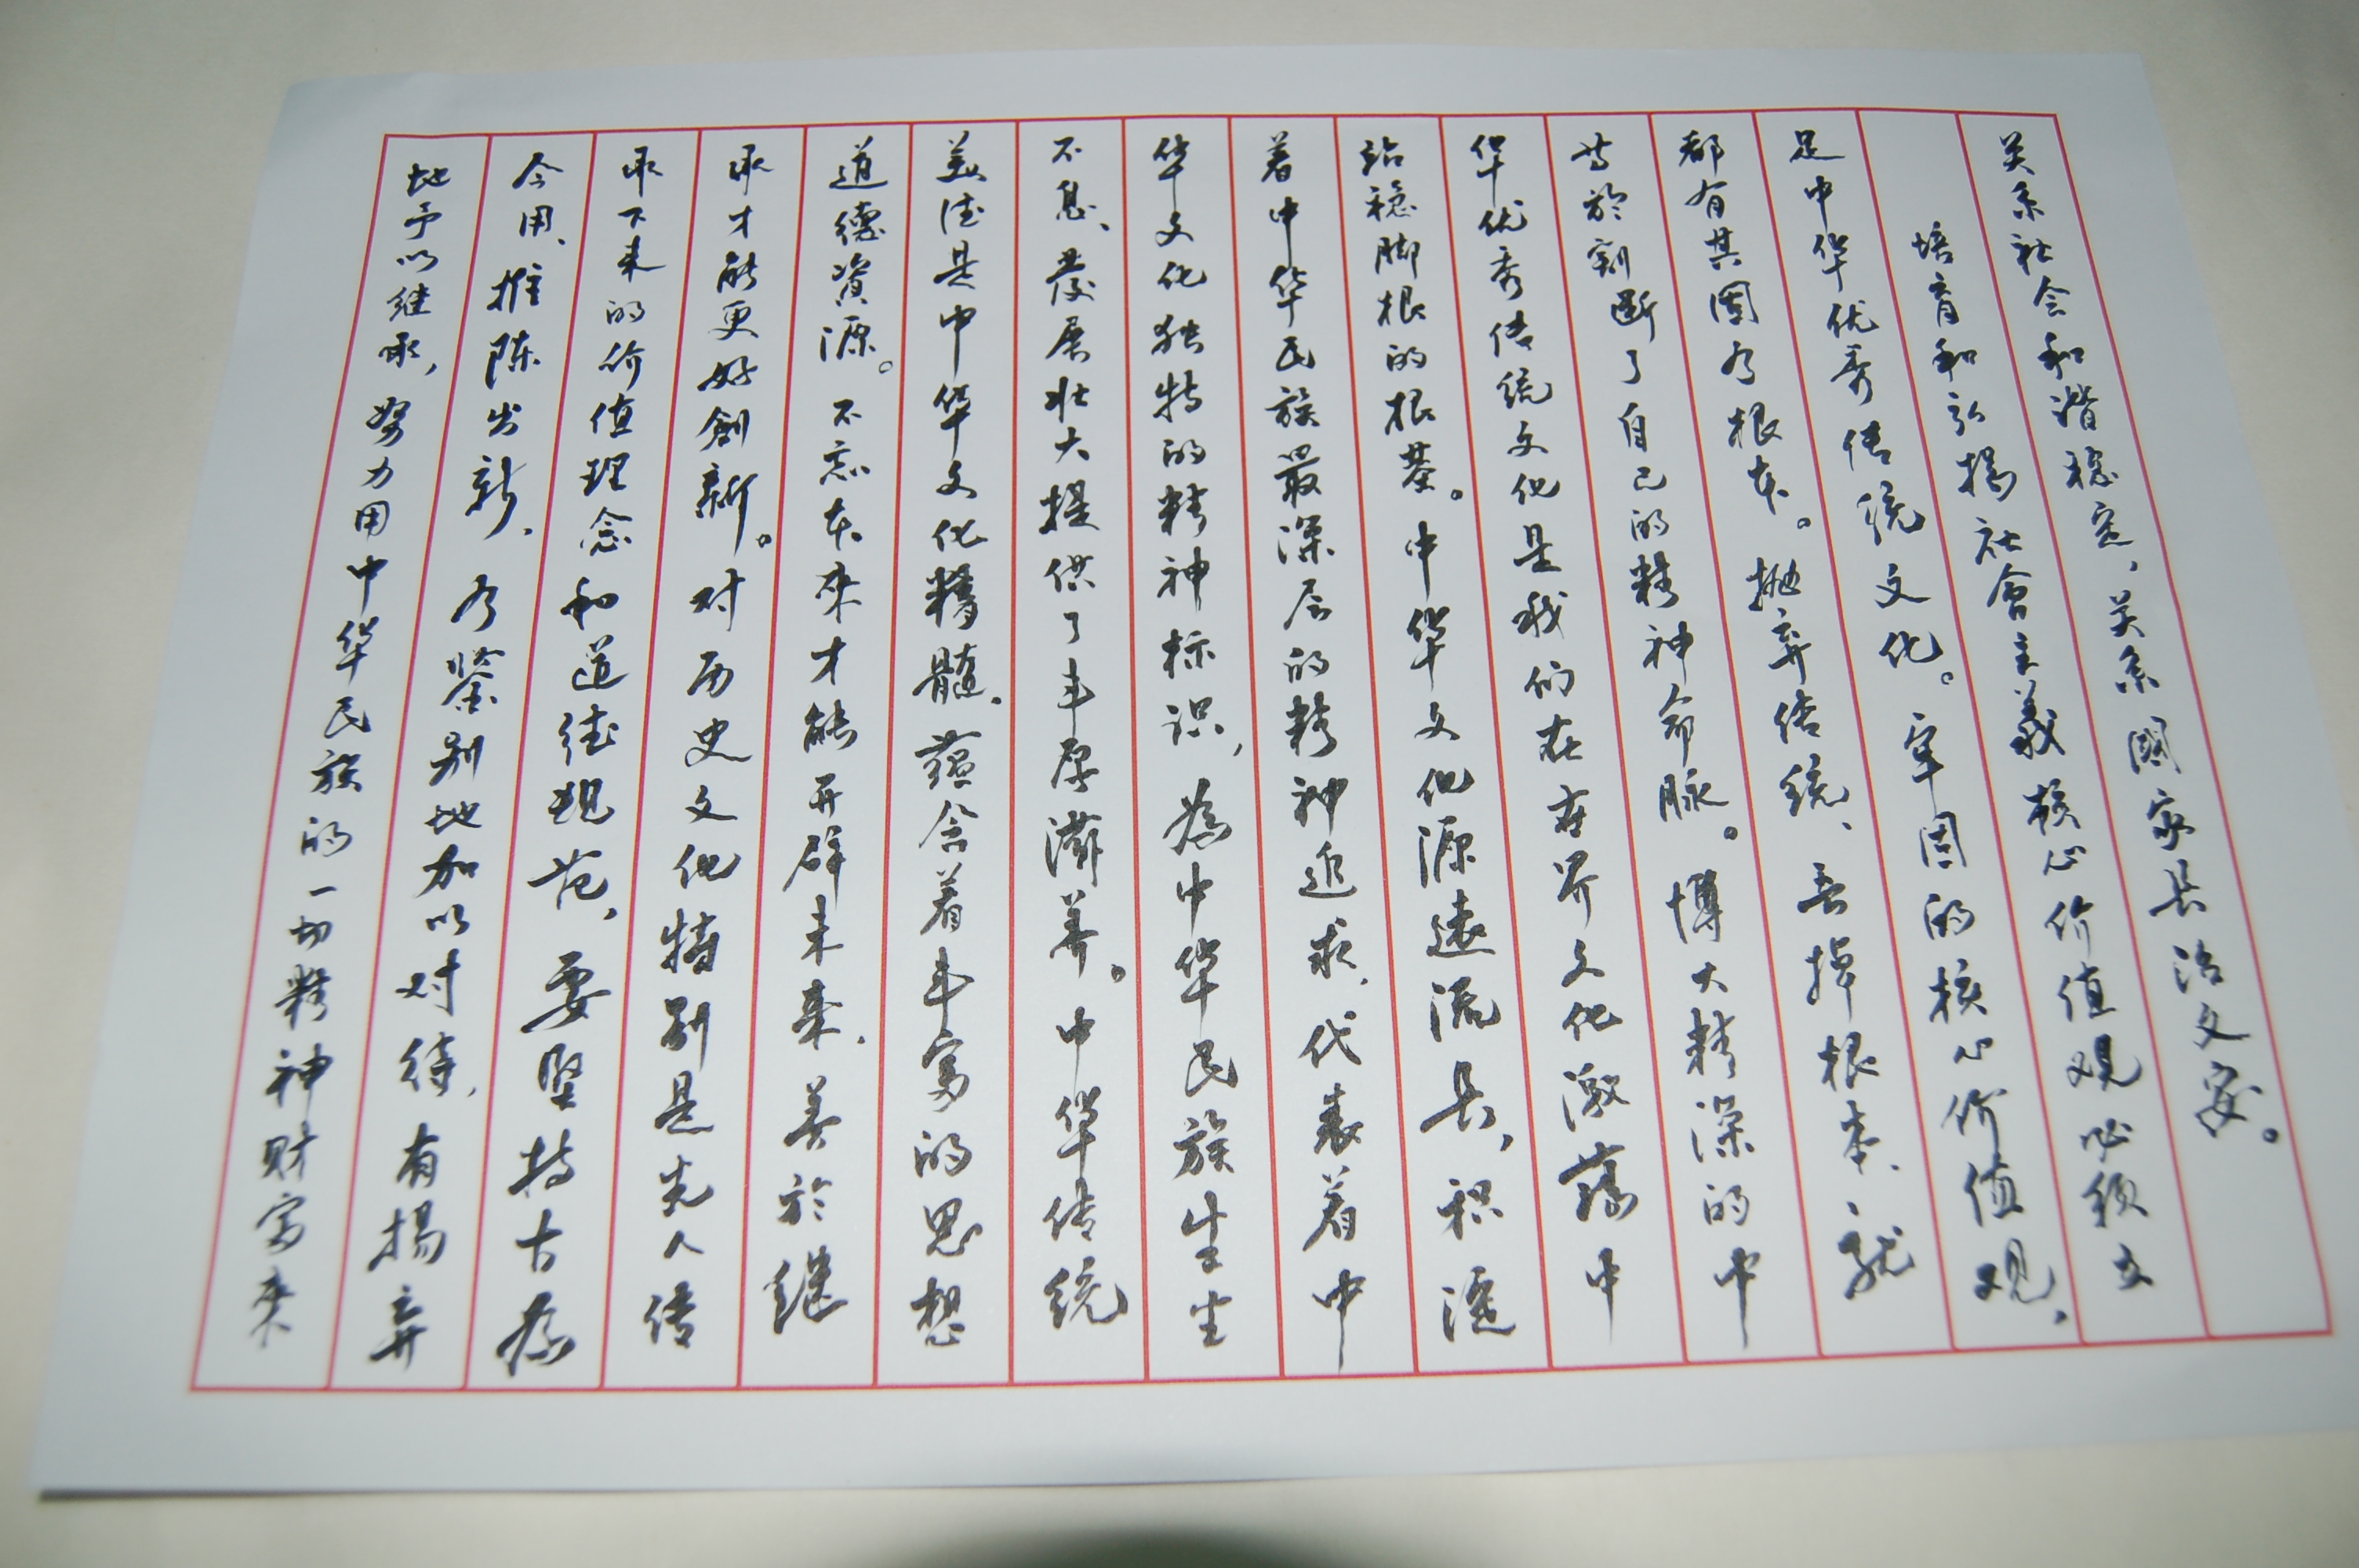 关系社会和谐稳定，关系國家長治久安。
培育和弘揚社會主義核心价值观必须立
足中华优秀传统文化。牢固的核心价值观，
都有其固有根本。抛弃传统、丢掉根本，就
等於割断了自己的精神命脉。博大精深的中
华优秀传统文化是我们在世界文化激荡中
站稳脚根的根基。中华文化源遠流長，积淀
着中华民族最深层的精神追求，代表着中
华文化独特的精神标识，為中华民族生生
不息、發展壮大提供了丰厚滋养。中华传统
美德是中华文化精髓，蕴含着丰富的思想
道德资源。不忘本来才能开辟未来，善於继
承才能更好創新。对历史文化特别是先人传
承下来的价值理念和道德规范，要坚持古為
今用、推陈出新，有鉴别地加以对待，有揚弃
地予以继承，努力用中华民族的一切精神财富来